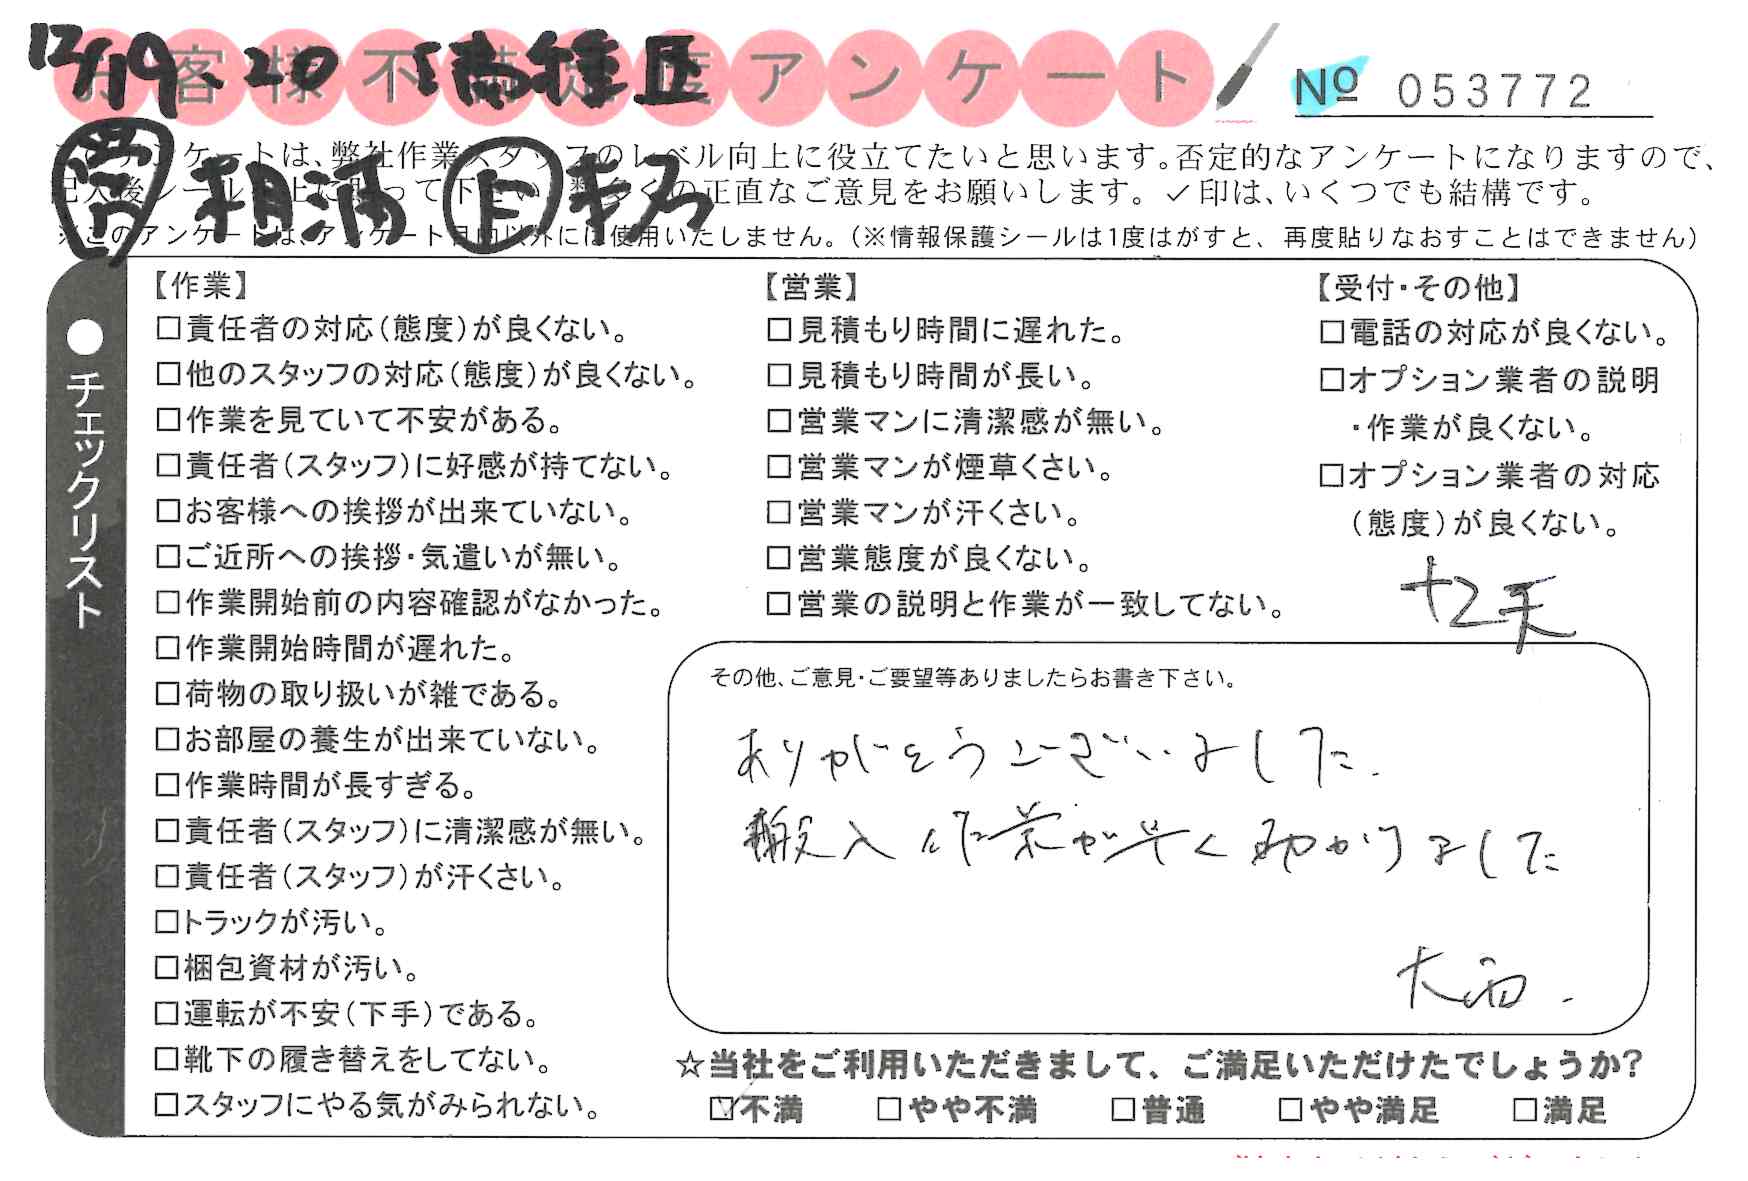 12/19.20
お客様不満足度アンケート
№ 053772
このアンケートは、弊社作業スタッフのレベル向上に役立てたいと思います。否定的なアンケートになりますので、
記入後シールを上に貼って下さい。数多くの正直なご意見をお願いします。✓印は、いくつでも結構です。
※このアンケートは、アンケート目的以外には使用いたしません。(※情報保護シールは1度はがすと、再度貼りなおすことはできません)
●チェックリスト
【作業】
□責任者の対応(態度)が良くない。
□他のスタッフの対応(態度)が良くない。
□作業を見ていて不安がある。
□責任者(スタッフ)に好感が持てない。
□お客様への挨拶が出来ていない。
□ご近所への挨拶・気遣いが無い。
□作業開始前の内容確認がなかった。
□作業開始時間が遅れた。
□荷物の取り扱いが雑である。
□お部屋の養生が出来ていない。
□作業時間が長すぎる。
□責任者(スタッフ)に清潔感が無い。
□責任者(スタッフ)が汗くさい。
□トラックが汚い。
□梱包資材が汚い。
□運転が不安(下手)である。
□靴下の履き替えをしてない。
□スタッフにやる気がみられない。
【営業】
□見積もり時間に遅れた。
□見積もり時間が長い。
□営業マンに清潔感が無い。
□営業マンが煙草くさい。
□営業マンが汗くさい。
□営業態度が良くない。
□営業の説明と作業が一致してない。
【受付・その他】
□電話の対応が良くない。
□オプション業者の説明
・作業が良くない。
□オプション業者の対応
(態度)が良くない。
その他、ご意見・ご要望等ありましたらお書き下さい。
ありがとうございました.
搬入作業が早く助かりました
大西.
☆当社をご利用いただきまして、ご満足いただけたでしょうか?
☑不満 □やや不満 □普通 □やや満足 □満足